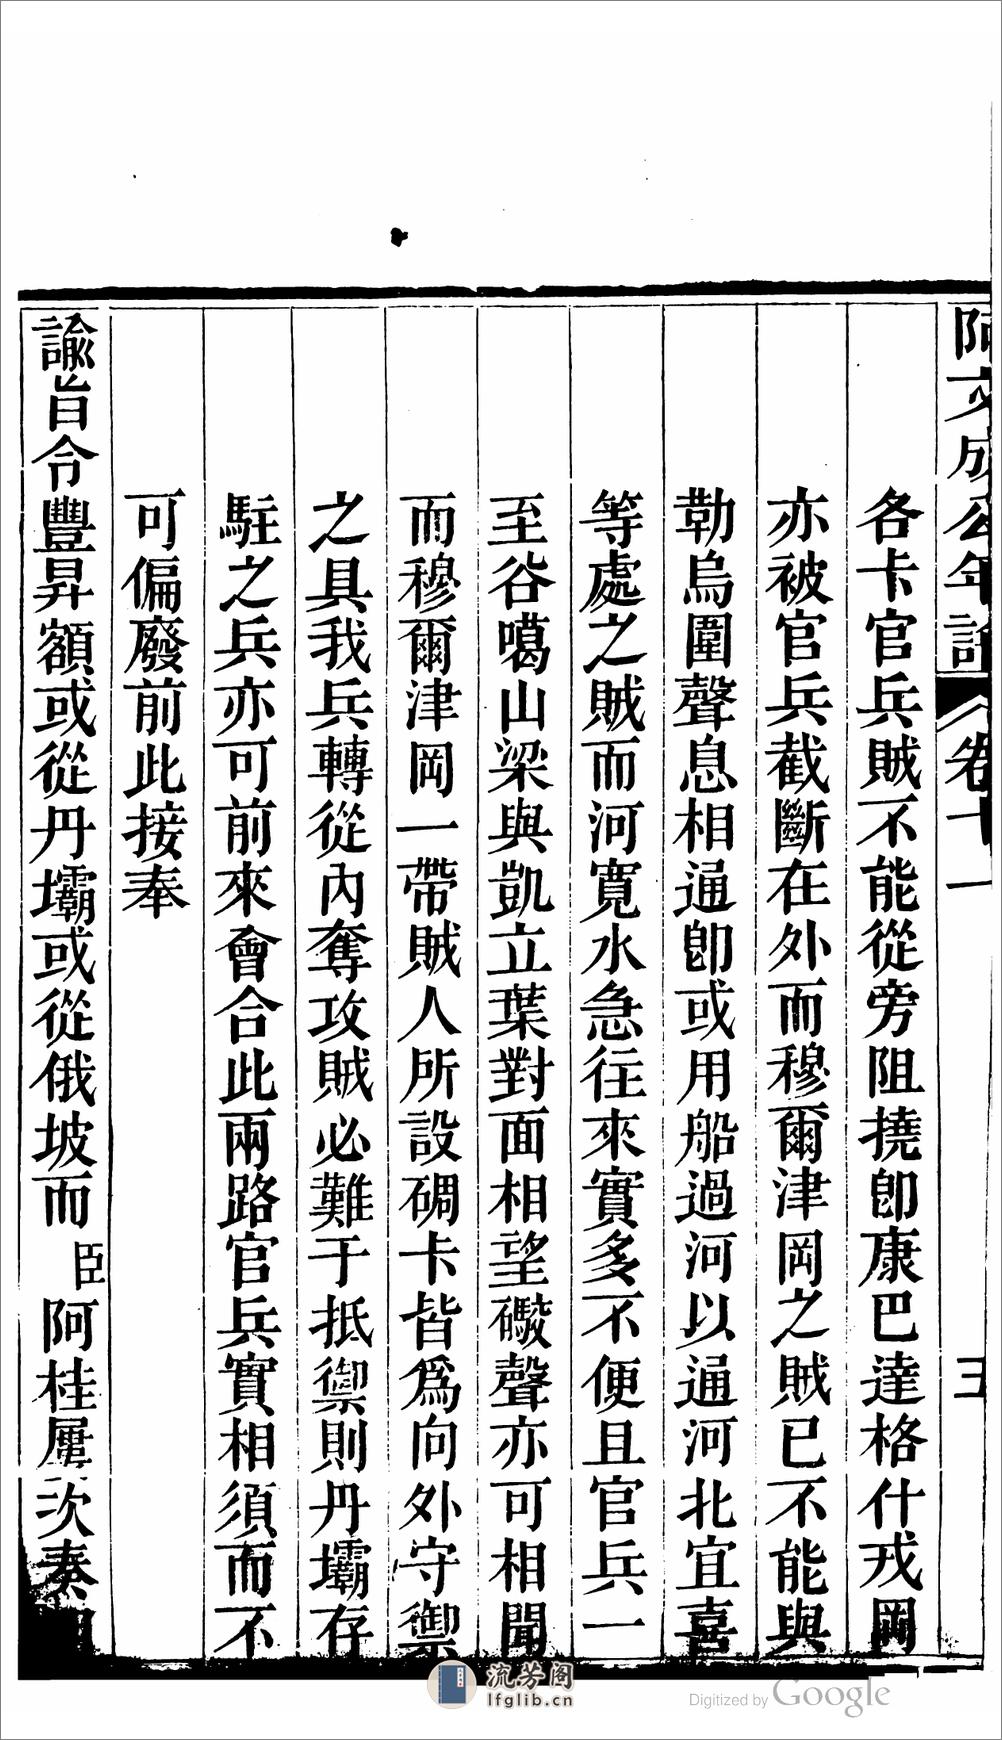 阿文成公年譜 卷十一 三
各卡官兵賊不能從旁阻撓卽康巴達格什戎岡
亦被官兵截斷在外而穆爾津岡之賊已不能與
勒烏圍聲息相通卽或用船過河以通河北宜喜
等處之賊而河寬水急往來實多不便且官兵一
至谷噶山梁與凱立葉對面相望礮聲亦可相聞
而穆爾津岡一帶賊人所設碉卡皆爲向外守禦
之具我兵轉從內奪攻賊必難于抵禦則丹壩存
駐之兵亦可前來會合此兩路官兵實相須而不
可偏廢前此接奉
諭旨令豐昇額或從丹壩或從俄坡而臣阿桂屢次奏
流芳阁
lfglib.cn
Digitized by Google